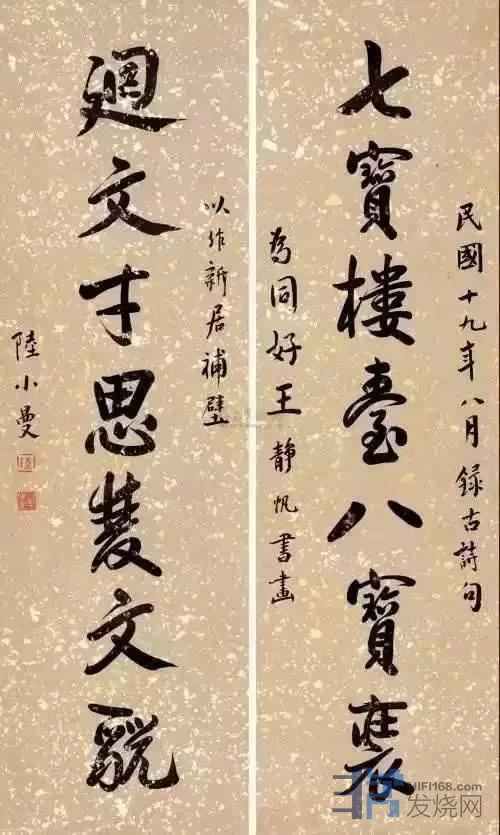 民國十九年八月錄古詩句
七寶樓臺八寶裝
為同好王靜帆書畫
以作新居補壁
廻文才思雙文貌
陸小曼
HIFI168.com
发烧网